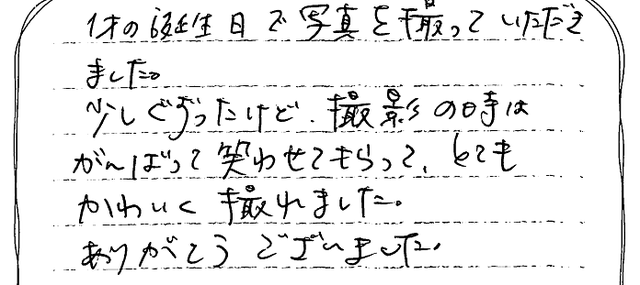 1才の誕生日で写真を撮っていただき
ました。
少しぐずったけど、撮影の時は
がんばって笑わせてもらって、とても
かわいく撮れました。
ありがとうございました。